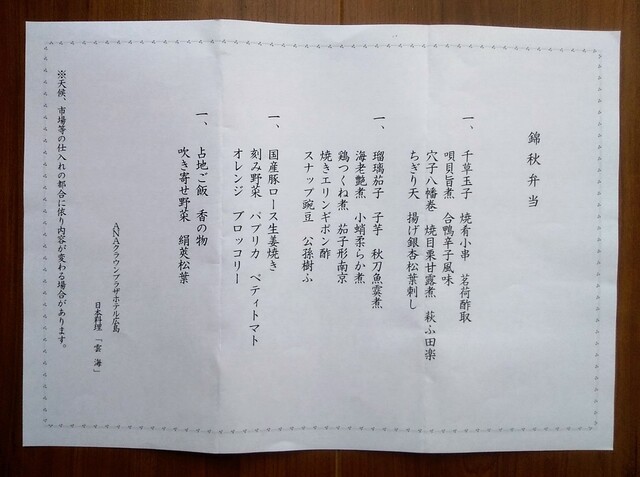 錦秋弁当
一、千草玉子 焼肴小串 茗荷酢取
唄貝旨煮 合鴨辛子風味
穴子八幡巻 焼目栗甘露煮 萩ふ田楽
ちぎり天 揚げ銀杏松葉刺し
一、瑠璃茄子 子芋 秋刀魚霙煮
海老艶煮 小蛸柔らか煮
鶏つくね煮 茄子形南京
焼きエリンギポン酢
スナップ豌豆 公孫樹ふ
一、国産豚ロース生姜焼き
刻み野菜 パプリカ ペティトマト
オレンジ ブロッコリー
一、占地ご飯 香の物
吹き寄せ野菜 絹莢松葉
ANAクラウンプラザホテル広島
日本料理 「雲海」
※天候、市場等の仕入れの都合に依り内容が変わる場合があります。